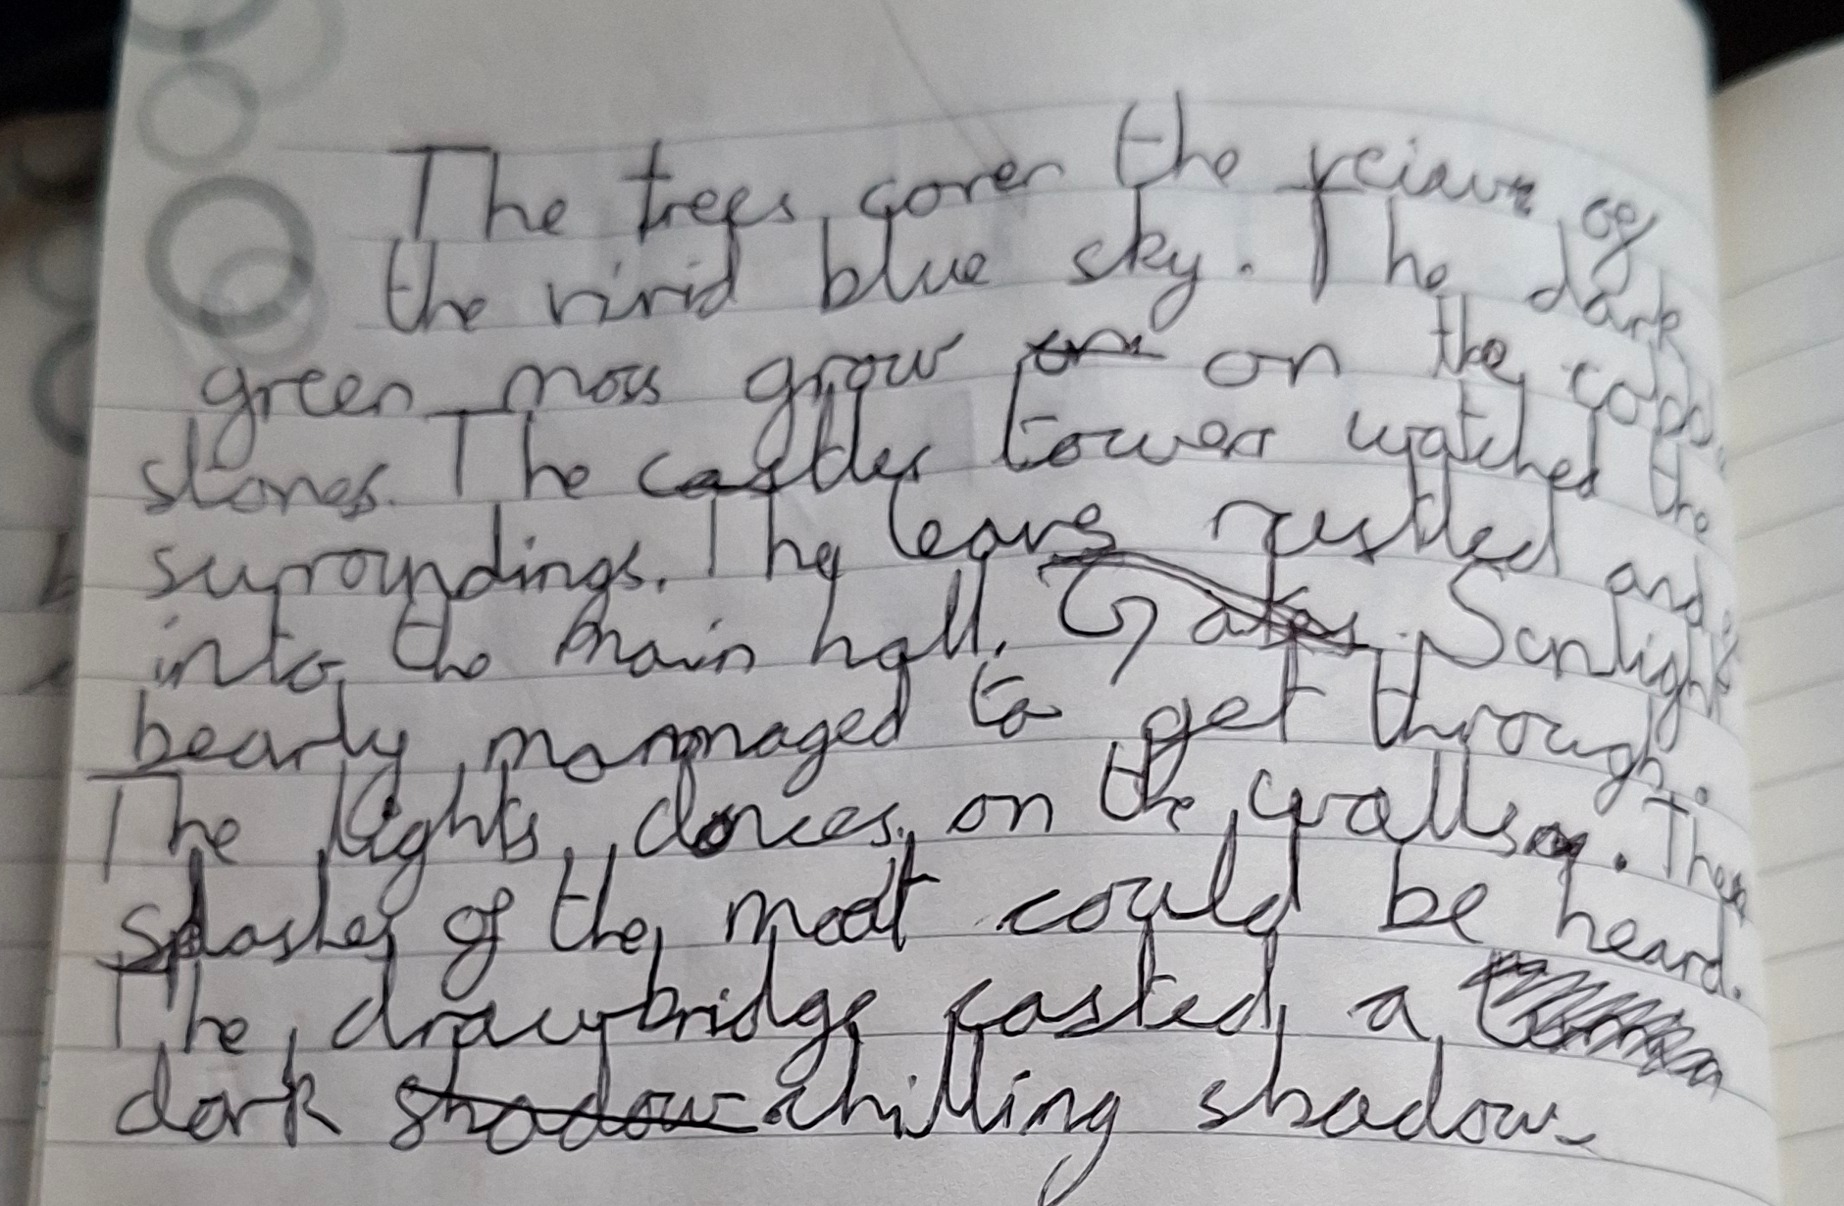 The trees cover the of
the vivid blue sky. The dark
green moss grow on the cobb
stones. The castles towers watched the
surroundings. The leavs rustled and
into the main hall. Gates. Sunlight
bearly mannaged to get through.
The lights dances on the walls. The
splashes of the moat could be heard.
The drawbridge casted a
dark shadow chilling shadow